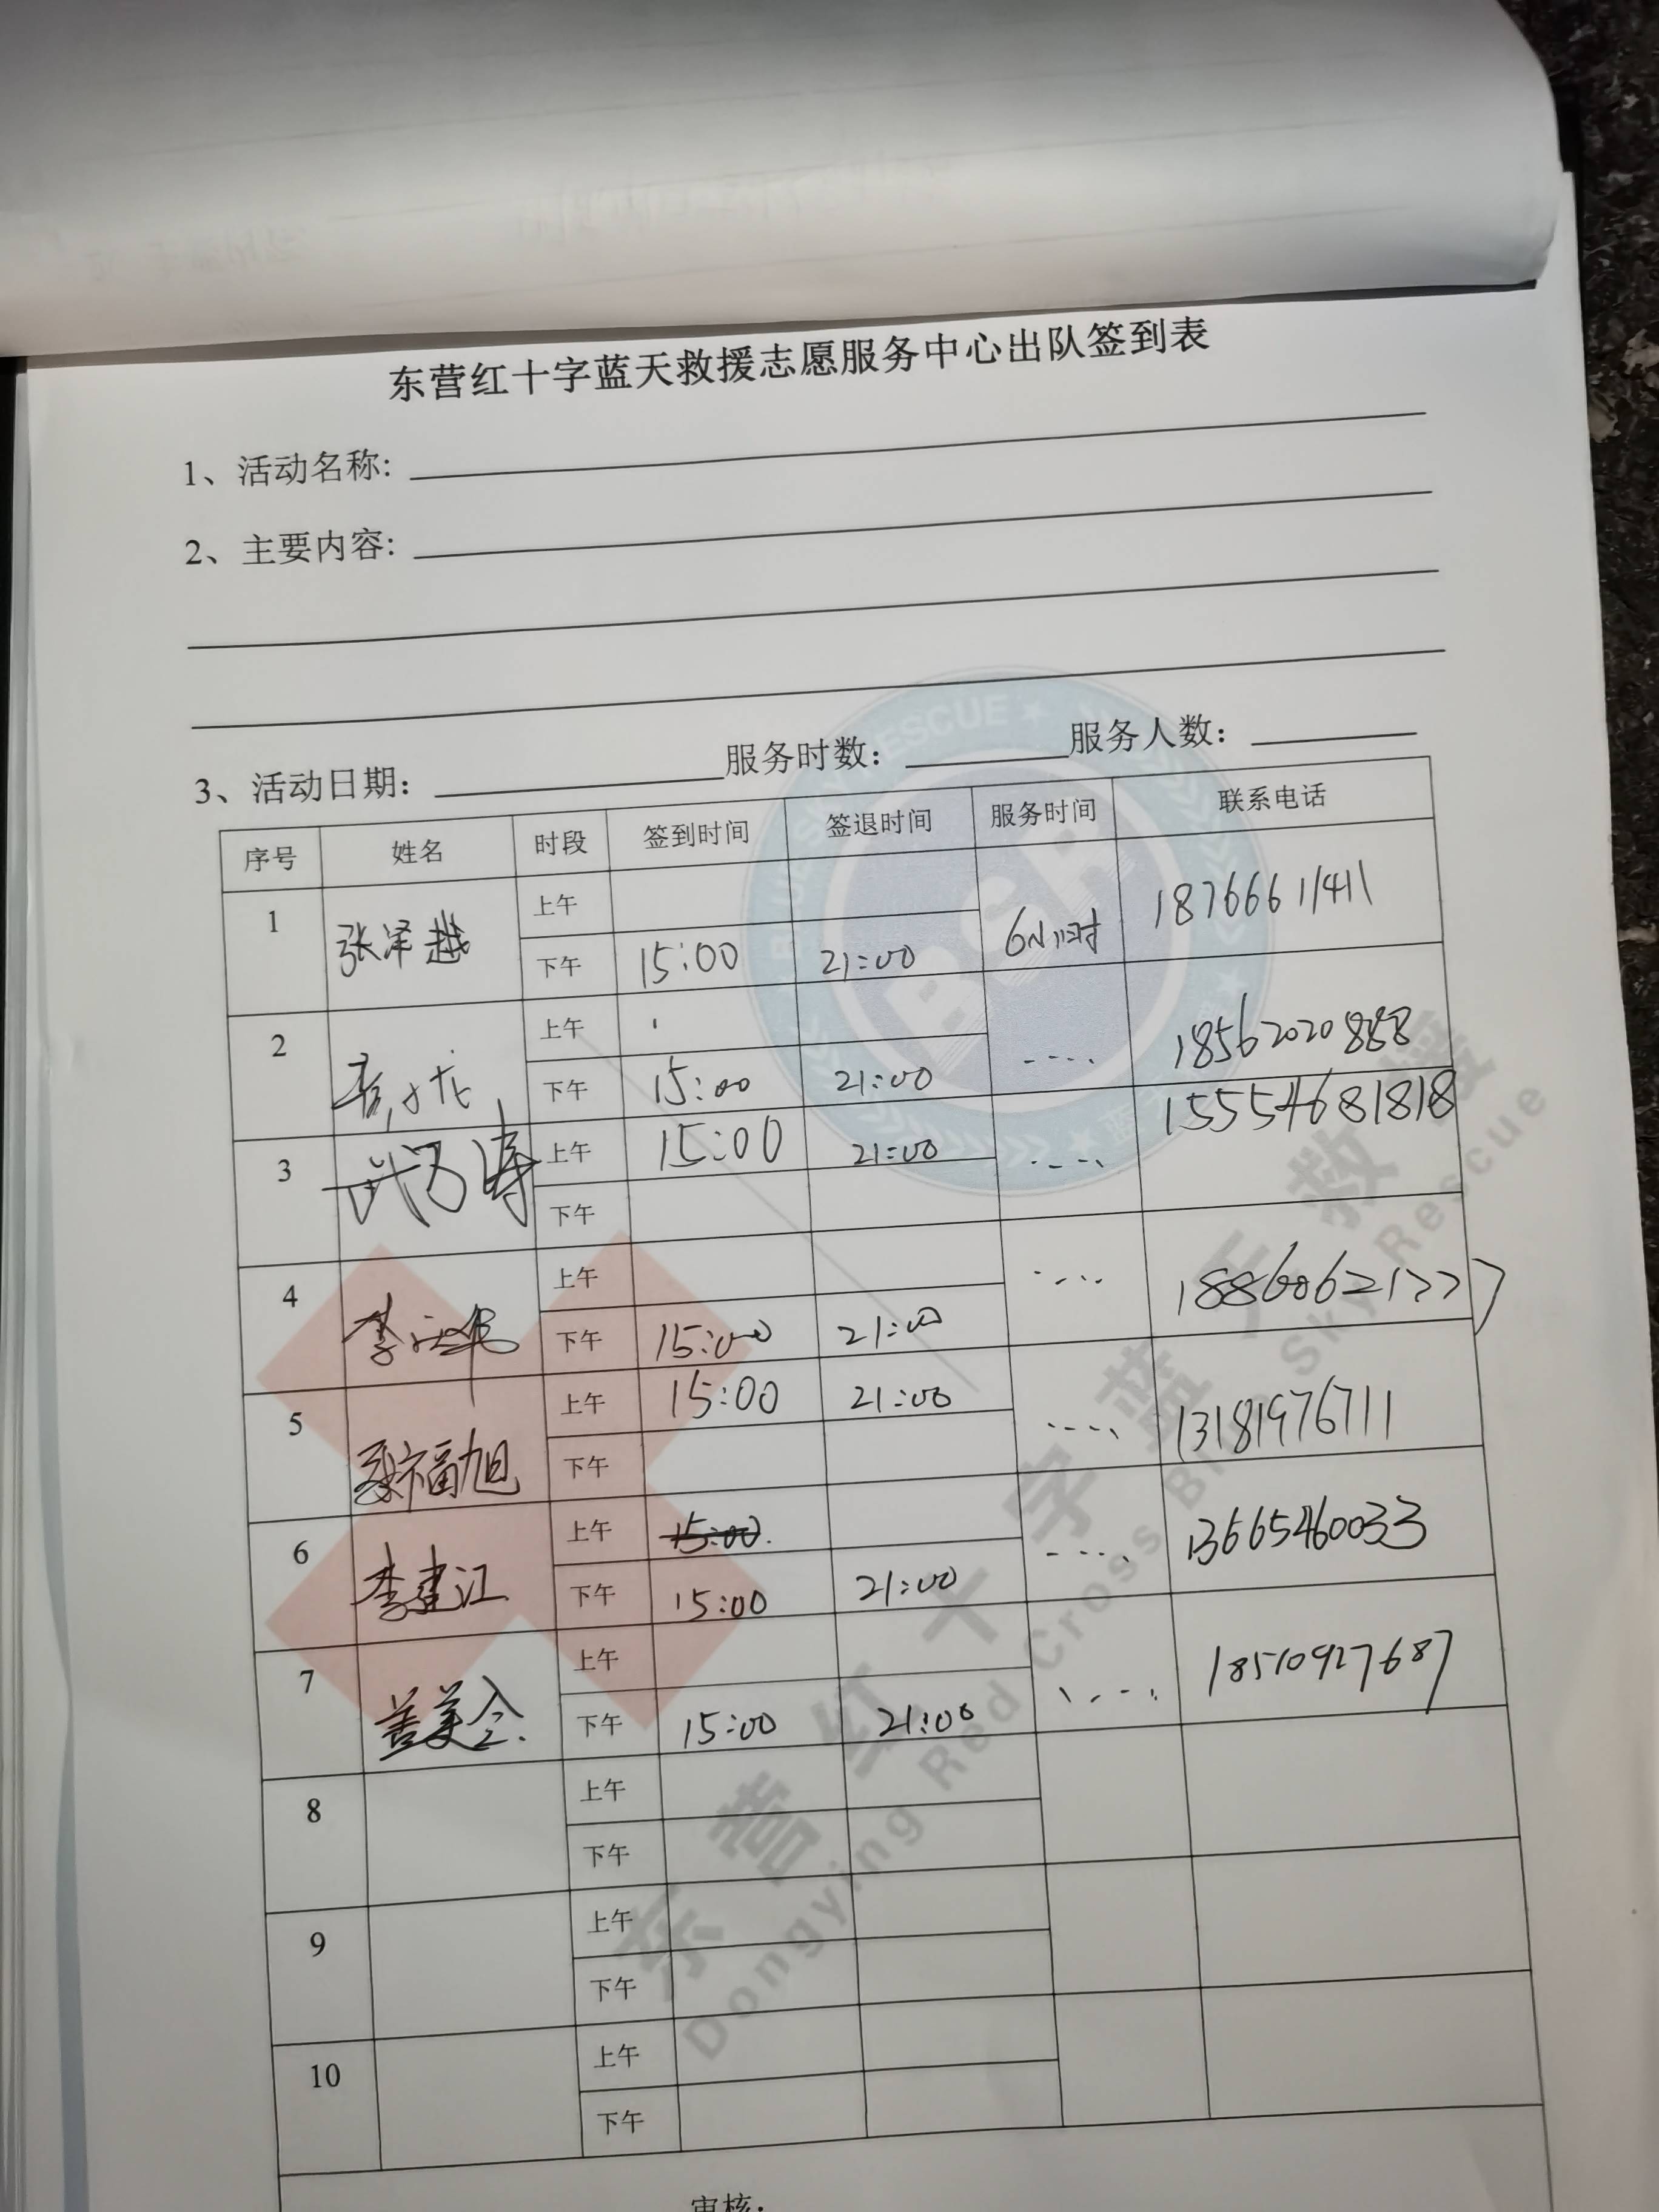 东营红十字蓝天救援志愿服务中心出队签到表
1、活动名称:
2、主要内容:
3、活动日期: 服务时数: 服务人数:
序号 姓名 时段 签到时间 签退时间 服务时间 联系电话
1 张泽越 上午 6小时 18766661411
下午 15:00 21:00
2 上午 18562020888
下午 15:00 21:00
3 上午 15:00 21:00 15554681818
下午
4 上午
下午 15:00 21:00
5 福旭 上午 15:00 21:00 13181976711
下午
6 李建江 上午 15:00 13665460033
下午 15:00 21:00
7 上午 18510927687
下午 15:00 21:00
8 上午
下午
9 上午
下午
10 上午
下午
审核:
BLUE SKY RESCUE
BSR
东营红十字蓝天救援
Dongying Red Cross Blue Sky Rescue